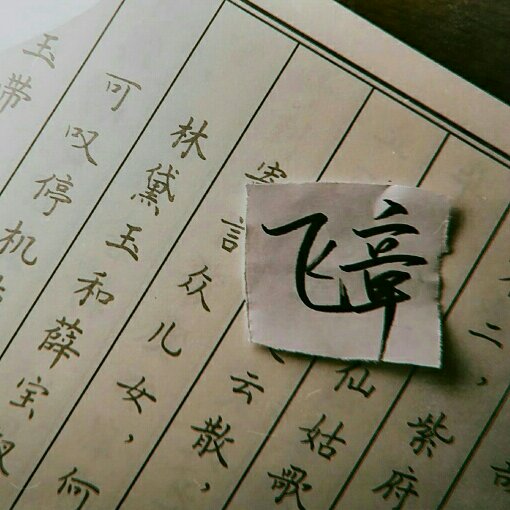 飞章
二，紫府
仙姑歌
云散，
寄言众儿女，何
林黛玉和薛宝钗
可叹停机
玉带